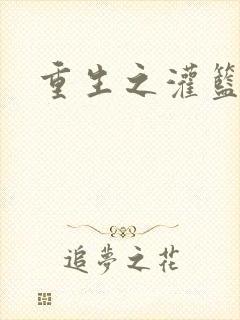 重生之灌籃
追夢之花